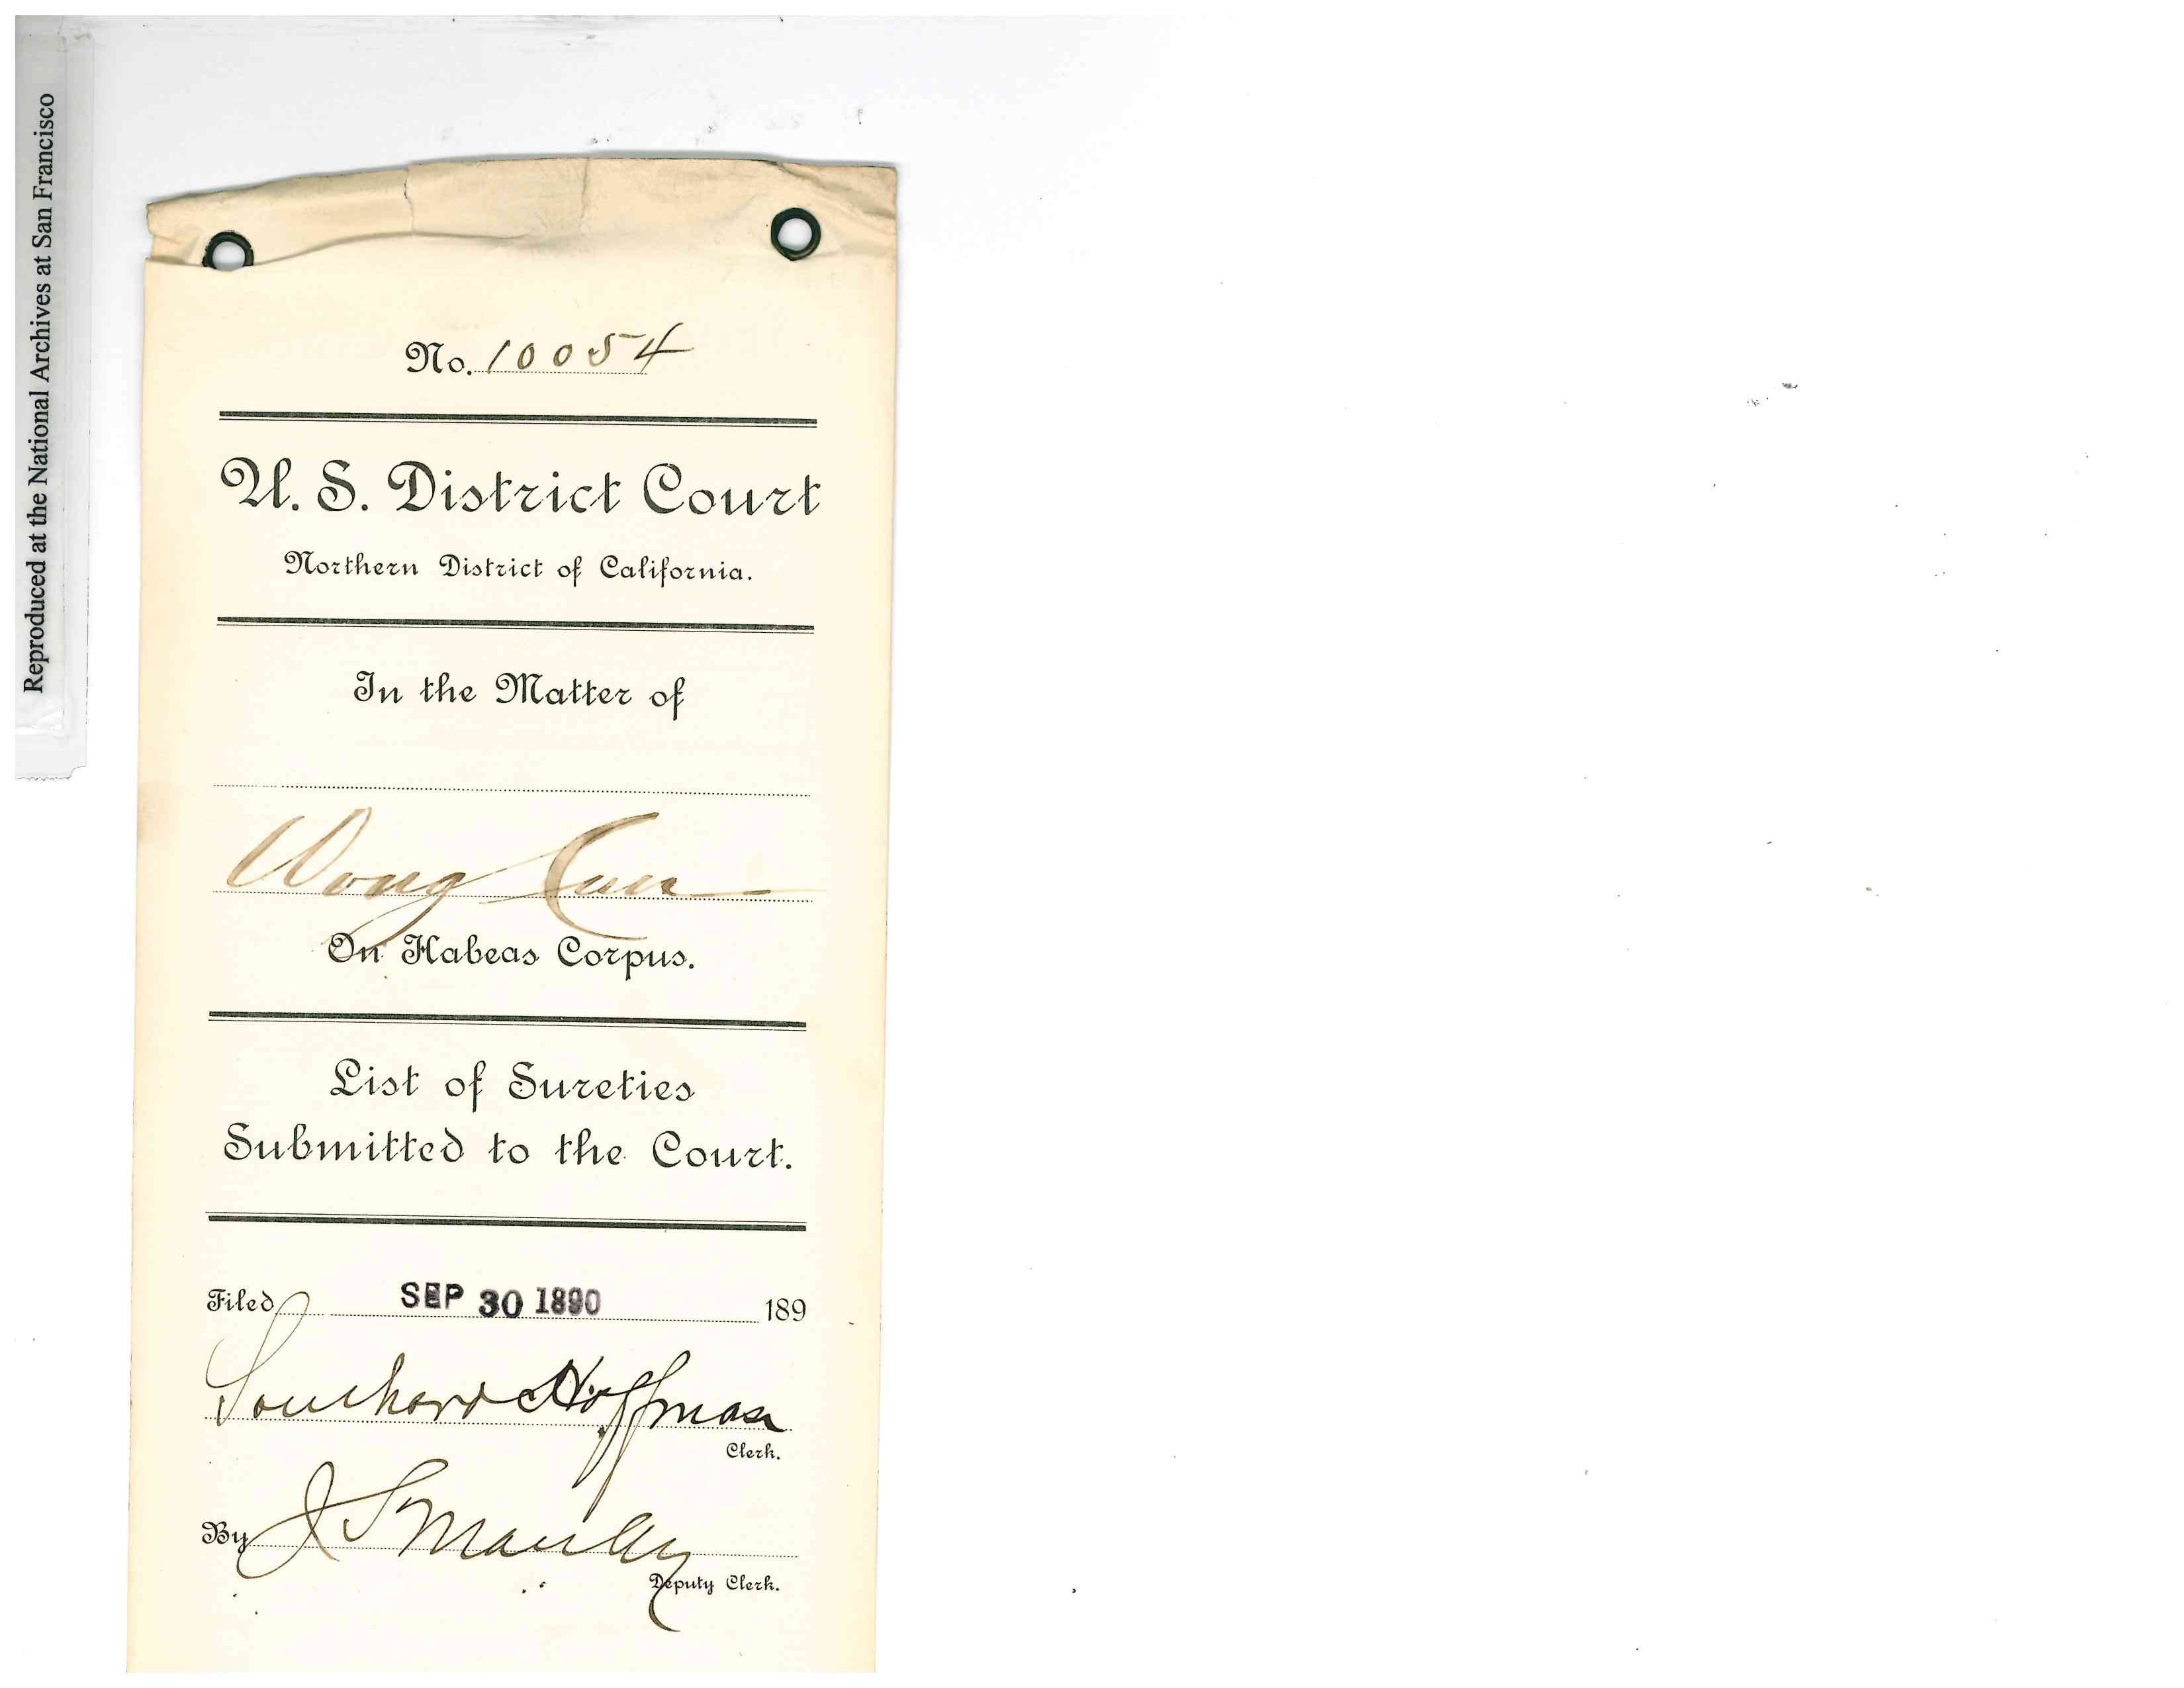 Reproduced at the National Archives at San Francisco
No. 10054
U. S. District Court
Northern District of California.
In the Matter of
Wong
On Habeas Corpus.
List of Sureties
Submitted to the Court.
Filed SEP 30 1890 189
Southard Hoffman
Clerk.
By J. S. Manley
Deputy Clerk.